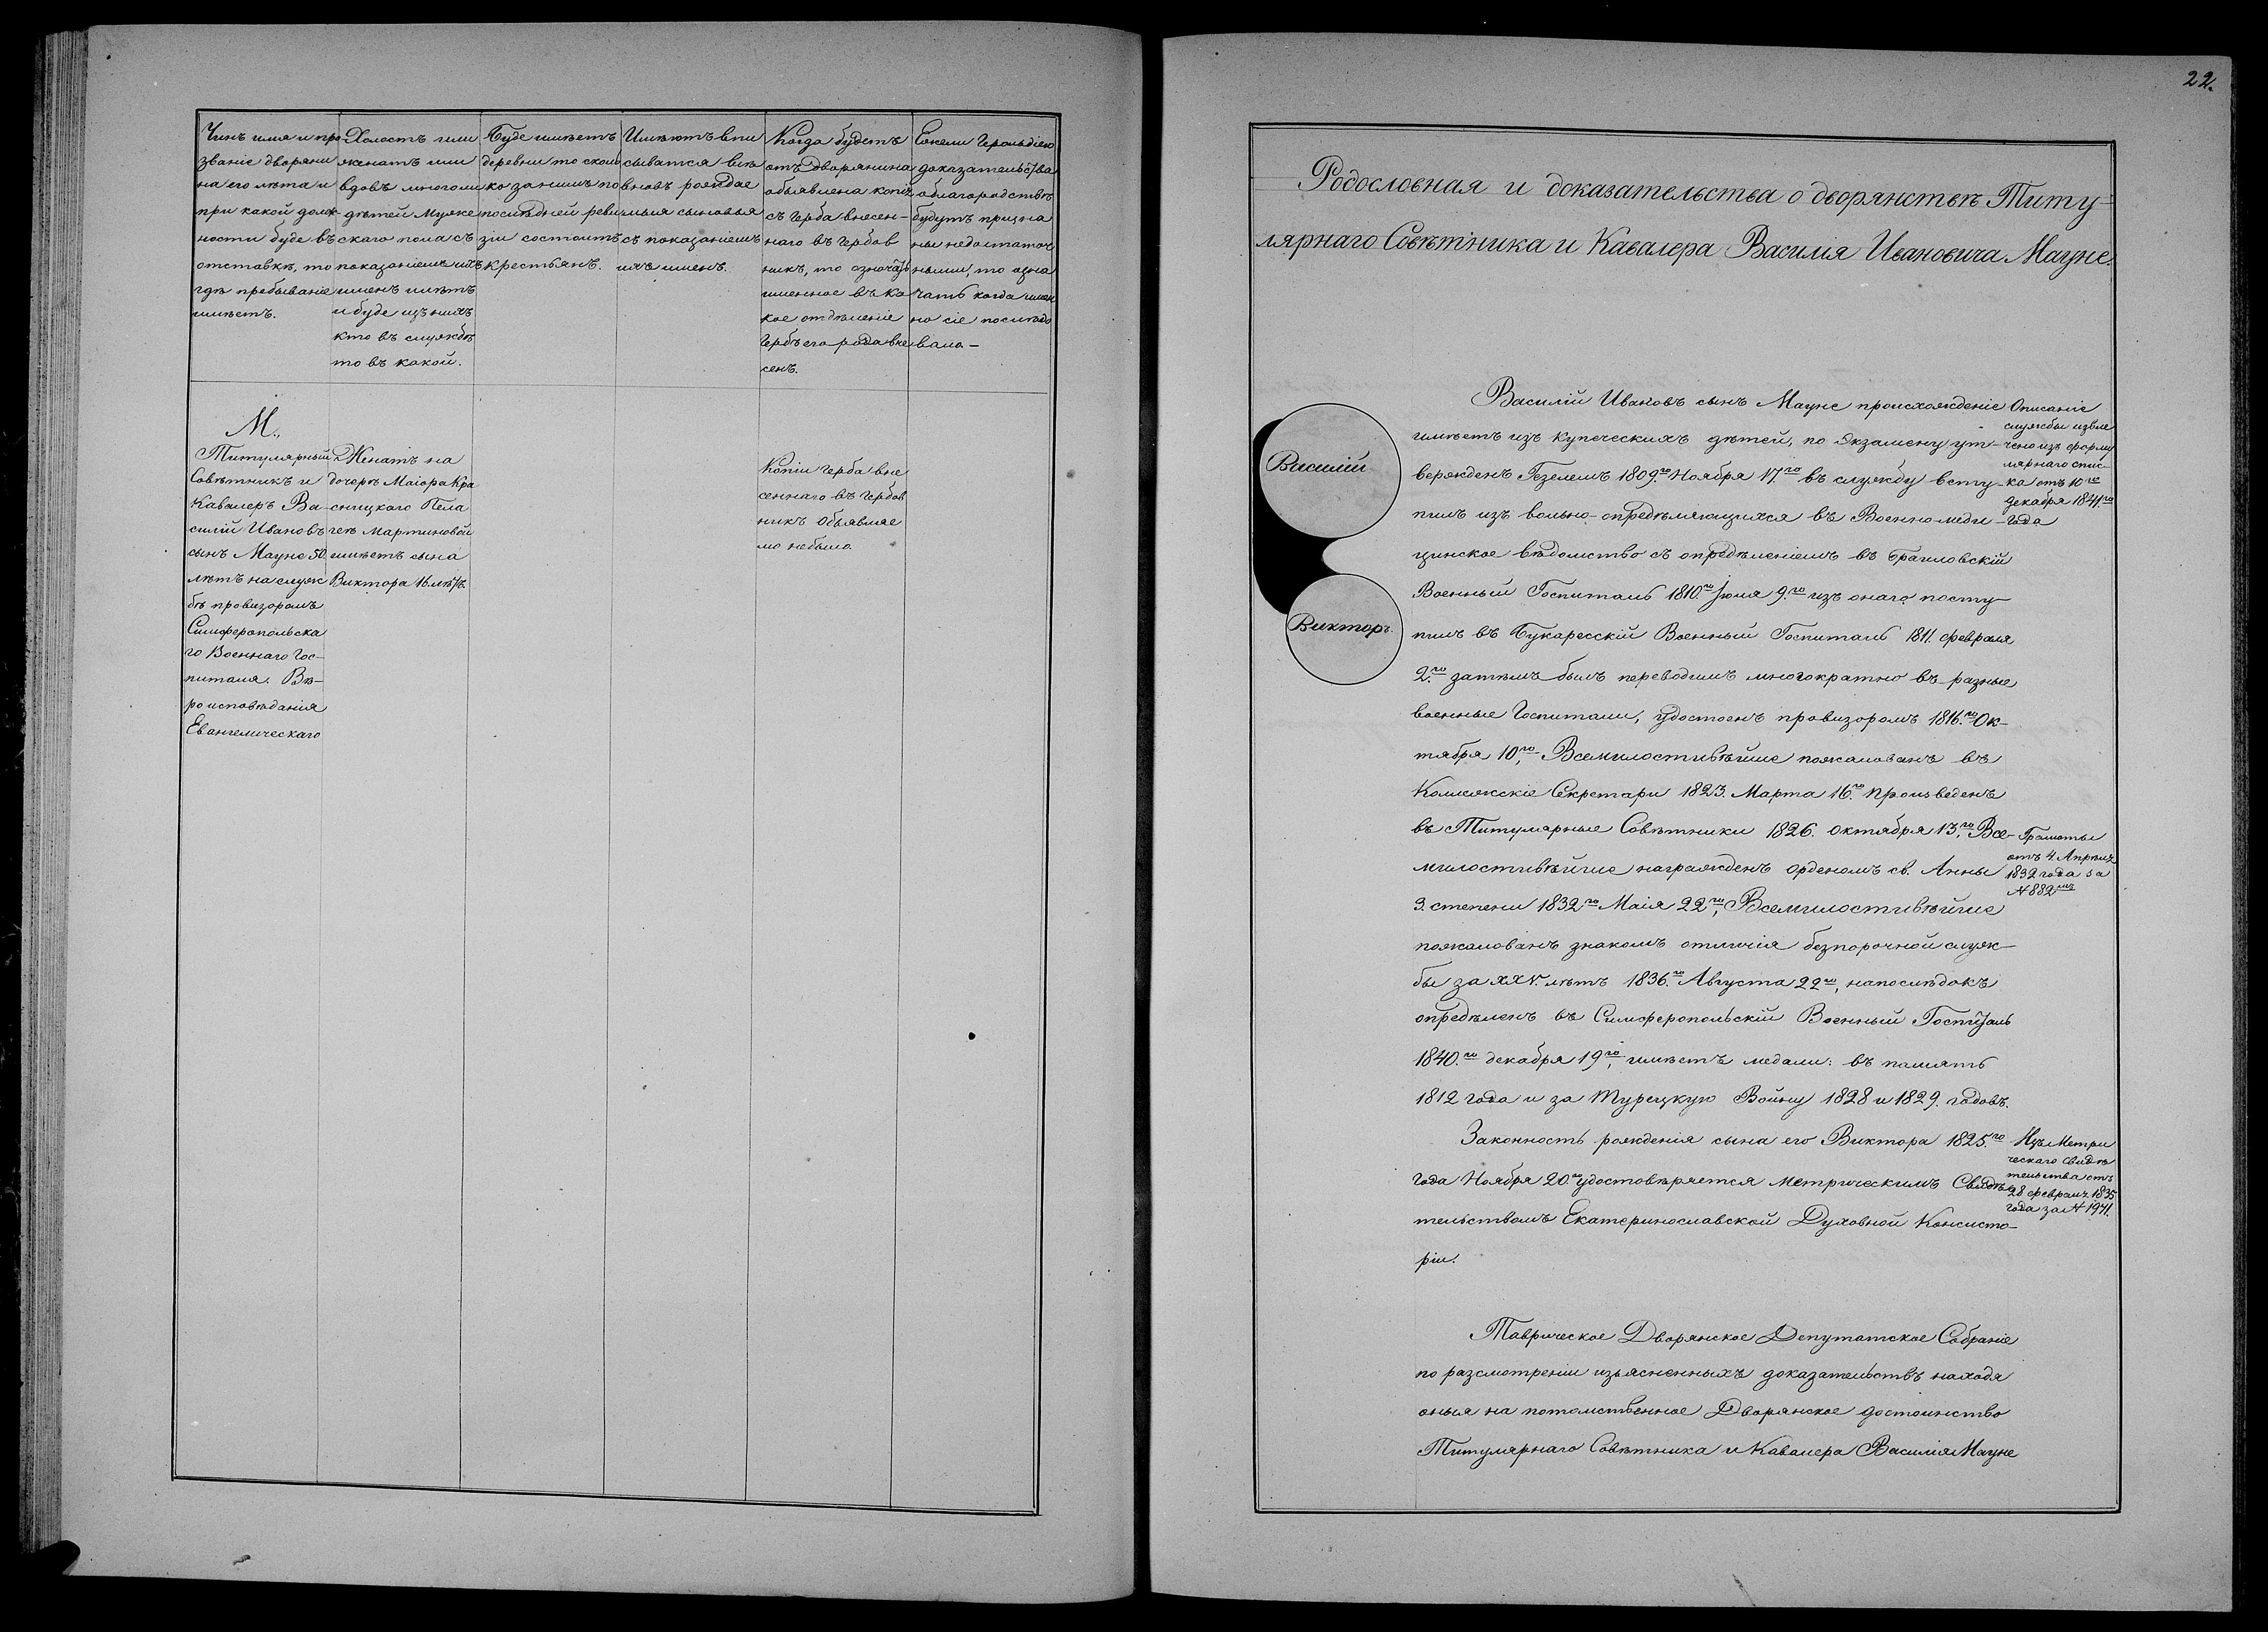 Чинъ имя и про-
званіе дворяни
на его лѣта и
при какой долж-
ности буде въ
отставкѣ, то
гдѣ пребываніе
имѣетъ.
Холостъ или
женатъ или
вдовъ многоли
дѣтей Муже
скаго пола съ
показаніемъ ихъ
именъ и лѣтъ
и буде изъ нихъ
кто въ службѣ
то въ какой.
Буде имѣетъ
деревни то сколь
ко за нимъ по
послѣдней реви
зіи состоитъ
крестьянъ.
Имѣютъ впи
сыватся вне
вновь рождае
мыя сыновья
съ показаніемъ
ихъ именъ.
Когда будетъ
отъ Дворянина
объявлена копія
съ герба внесен-
наго въ Гербов
никъ, то означать
имянное въ ка
кое отдѣленіе
Гербъ его рода вне
сенъ.
Ежели Герольдіею
доказательства
о благородствѣ
будутъ призна
ны недостаточ
ными, то озна
чать когда имен
но сіе послѣдо
вало –
М.,
Титулярный
Совѣтникъ и
Кавалеръ Ва-
силій Ивановъ
сынъ Мауне 50
лѣтъ на служ
бѣ провизоромъ
Симферопольска
го Военнаго Гос-
питаля. Вѣ-
роисповѣданія
Евангелическаго
Женатъ на
дочерѣ Маіора Кра
сницкаго Пела
геѣ Мартиновой
имѣетъ сына
Виктора 16 лѣтъ.
Копіи герба вне
сеннаго въ Гербов
никъ объявляе
мо небыло.
22.
Родословная и доказательства о дворянствѣ Титу-
лярнаго Совѣтника и Кавалера Василія Ивановича Мауне.
Василій
Викторъ.
Василій Ивановъ сынъ Мауне происхожденіе
имѣетъ изъ купеческихъ дѣтей, по Экзамену ут-
вержденъ Гезелемъ 1809.го Ноября 17.го въ службу всту-
пилъ изъ вольно-опредѣляющихся въ Военно-меди-
цинское вѣдомство съ опредѣленіемъ въ Браиловскій
Военный Госпиталь 1810.го Іюня 9.го изъ онаго посту-
пилъ въ Букаресскій Военный Госпиталь 1811. февраля
2.го затѣмъ былъ переводимъ многократно въ разные
военные Госпитали, удостоенъ провизоромъ 1816.го Ок-
тября 10,го Всемилостивѣйше пожалованъ въ
Коллежскіе Секретари 1823. Марта 16.го произведенъ
въ Титулярные Совѣтники 1826. октября 13,го Все-
милостивѣйше награжденъ орденомъ св. Анны
3. степени 1832го Маія 22го, Всемилостивѣйше
пожалованъ знакомъ отличія безпорочной служ-
бы за XXV. лѣтъ 1836.го Августа 22го, напослѣдокъ
опредѣленъ въ Симферопольскій Военный Госпиталь
1840.го декабря 19го, имѣетъ медали: въ память
1812 года и за Турецкую Войну 1828 и 1829. годовъ.
Законность рожденія сына его Виктора 1825.го
года Ноября 20.го удостовѣряется метрическимъ Свидѣ-
тельствомъ Екатеринославской Духовной Консисто-
ріи.
Таврическое Дворянское Депутатское Собраніе
по разсмотреніи изъясненныхъ доказательствъ находя
оныя на потомственное Дворянское достоинство
Титулярнаго Совѣтника и Кавалера Василія Мауне
Описаніе
службы извле
чено изъ форму
лярнаго спис-
ка отъ 10го
декабря 1841.го
года
Грамоты
отъ 4. Апрѣля
1832 года за
№ 882мъ
Изъ Метри
ческаго свидѣ
тельства отъ
28 февраля 1835
года за № 1941.